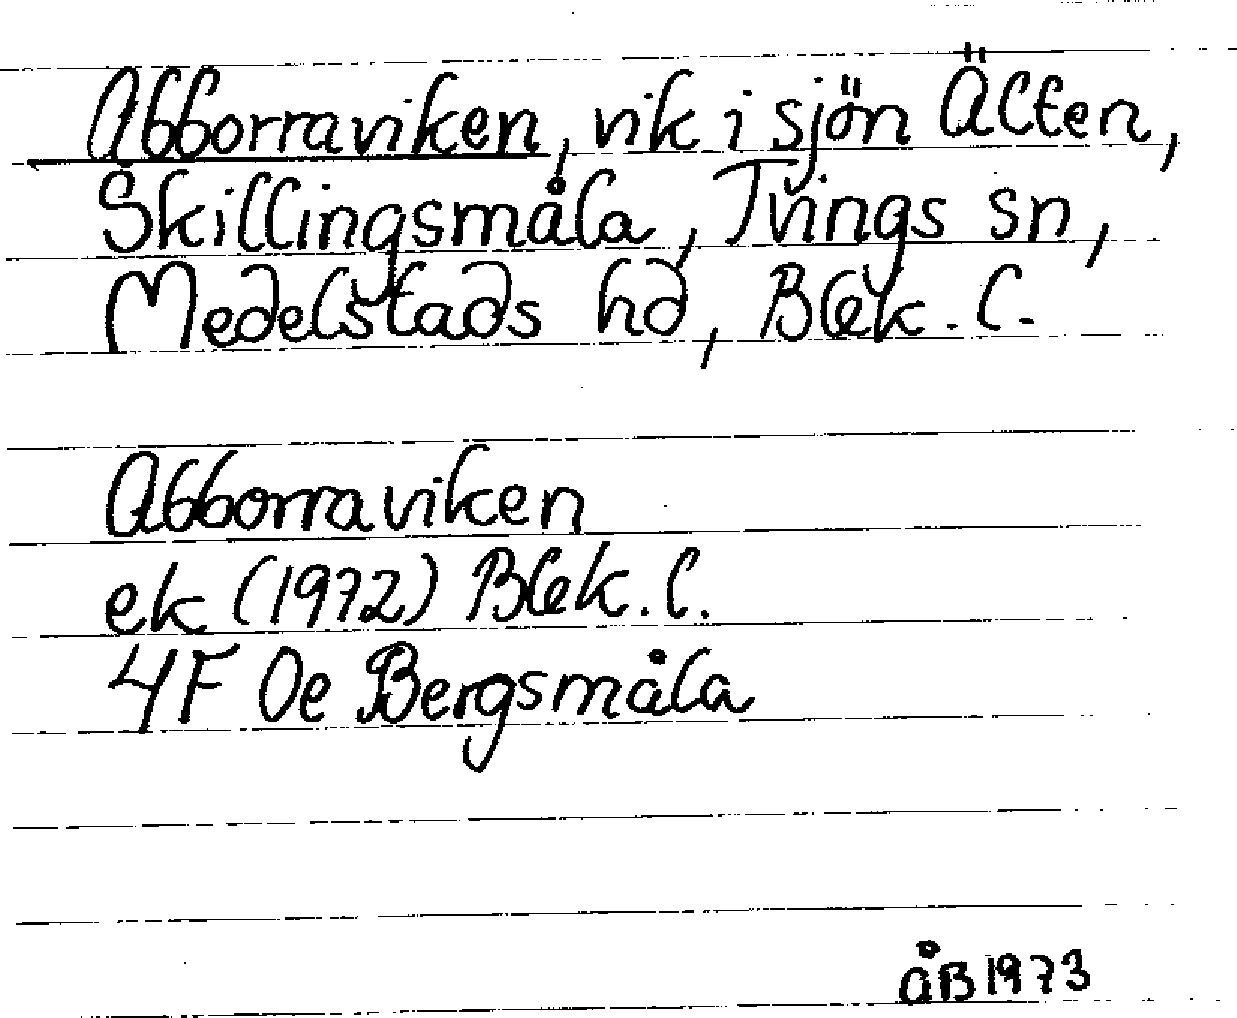 Abborraviken, vik i sjön Älten,
Skillingsmåla, Tvings sn,
Medelstads hd, Blek. l.
Abborraviken
ek (1972) Blek. l.
4F 0e Bergsmåla
åB 1973